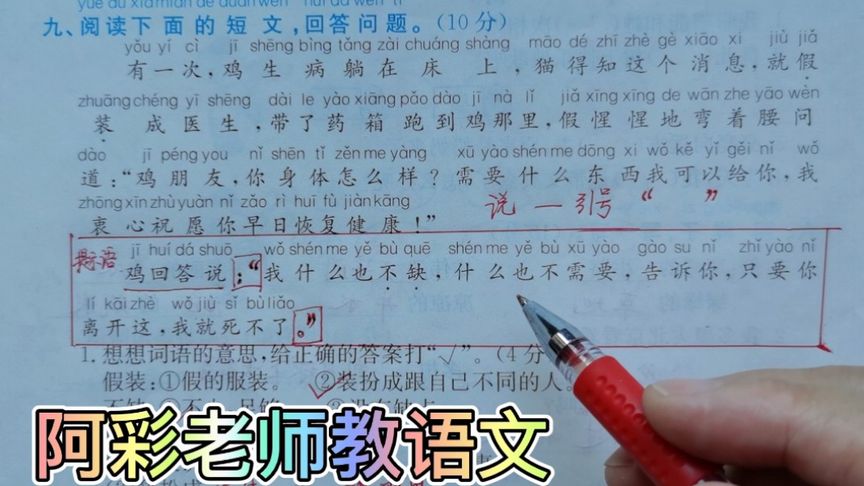 九、阅读下面的短文,回答问题。(10分)
yǒu yí cì jī shēng bìng tǎng zài chuáng shàng māo dé zhī zhè gè xiāo xi jiù jiǎ
有一次,鸡生病躺在床上,猫得知这个消息,就假
zhuāng chéng yī shēng dài le yào xiāng pǎo dào jī nà lǐ jiǎ xīng xīng de wān zhe yāo wèn
装成医生,带了药箱跑到鸡那里,假惺惺地弯着腰问
dào jī péng you nǐ shēn tǐ zěn me yàng xū yào shén me dōng xi wǒ kě yǐ gěi nǐ wǒ
道:“鸡朋友,你身体怎么样?需要什么东西我可以给你,我
zhōng xīn zhù yuàn nǐ zǎo rì huī fù jiàn kāng
衷心祝愿你早日恢复健康!” 说 — 引号 “ ”
jī huí dá shuō wǒ shén me yě bù quē shén me yě bù xū yào gào su nǐ zhǐ yào nǐ
提示语 鸡回答说:“我什么也不缺,什么也不需要,告诉你,只要你
lí kāi zhè wǒ jiù sǐ bù liǎo
离开这,我就死不了。”
1.想想词语的意思,给正确的答案打“√”。(4分
假装:①假的服装。 ②装扮成跟自己不同的人。
阿彩老师教语文